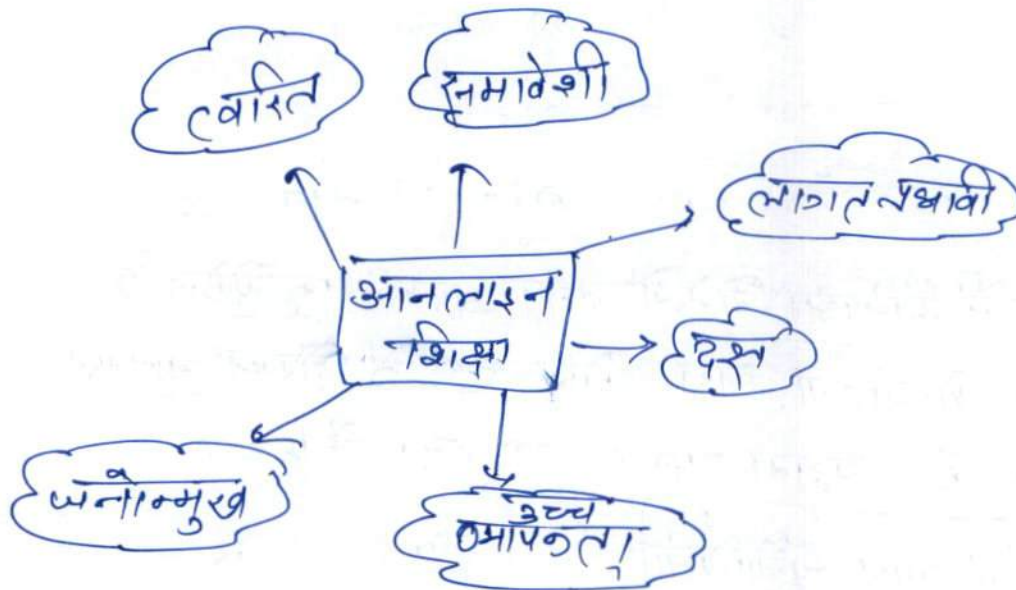 त्वरित
समावेशी
लागत प्रभावी
आनलाइन
शिक्षा
दक्ष
जनोन्मुख
उच्च
व्यापकता